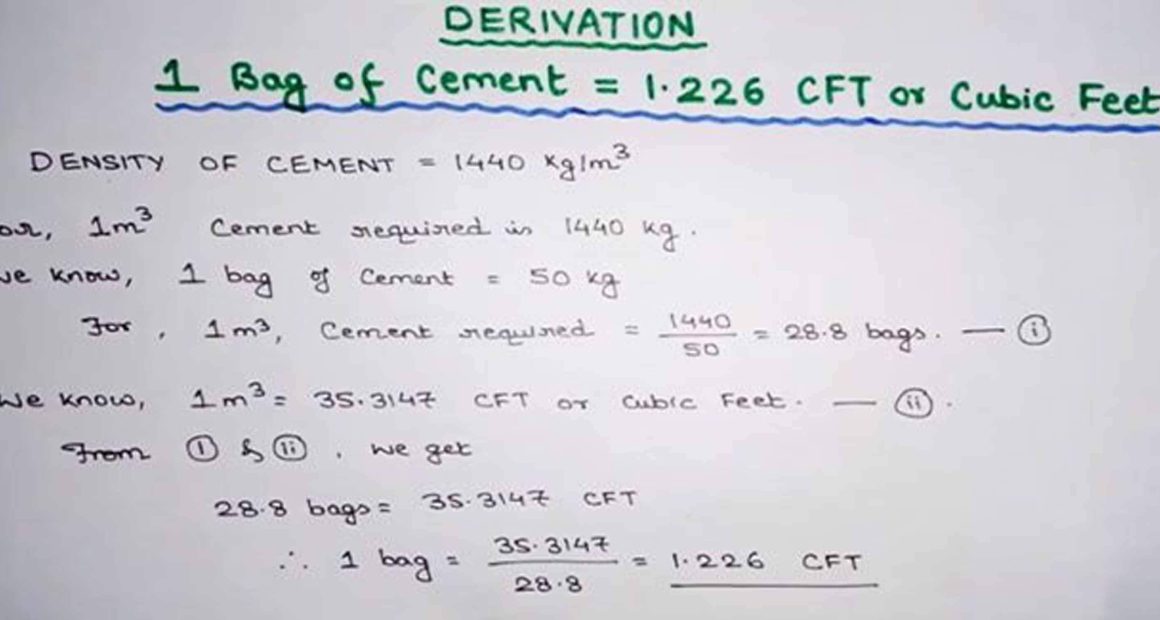 DERIVATION
1 Bag of Cement = 1.226 CFT or Cubic Feet
DENSITY OF CEMENT = 1440 Kg/m³
or, 1m³ Cement required is 1440 kg.
we know, 1 bag of Cement = 50 kg
For, 1m³, Cement required = 1440/50 = 28.8 bags. — (i)
We know, 1m³ = 35.3147 CFT or Cubic Feet. — (ii).
From (i) & (ii), we get
28.8 bags = 35.3147 CFT
∴ 1 bag = 35.3147/28.8 = 1.226 CFT